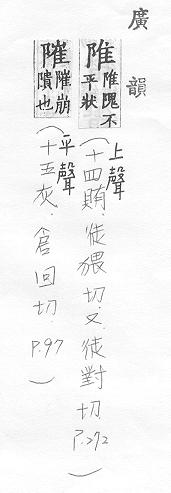 廣韻
陮陮隗不平狀(上聲十四賄.徒猥切.又徒對切.P.272)
𨻵𨻵崩隤也(平聲十五灰.倉回切.P.97)